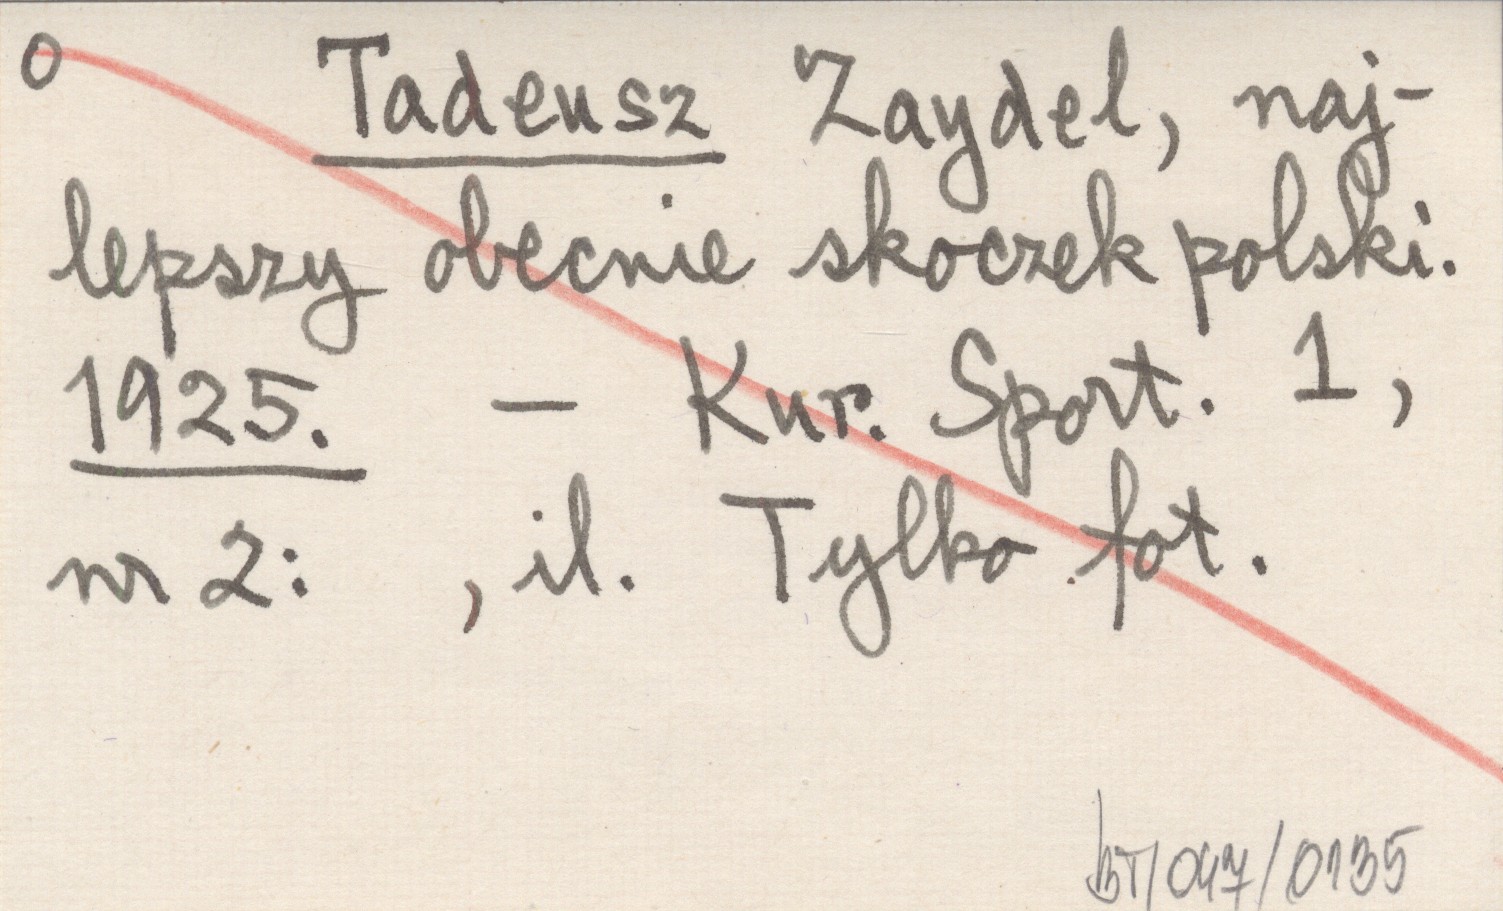 O Tadeusz Zaydel, naj-
lepszy obecnie skoczek polski.
1925. — Kur. Sport. 1,
nr 2: , il. Tylko fot.
BT/047/0135